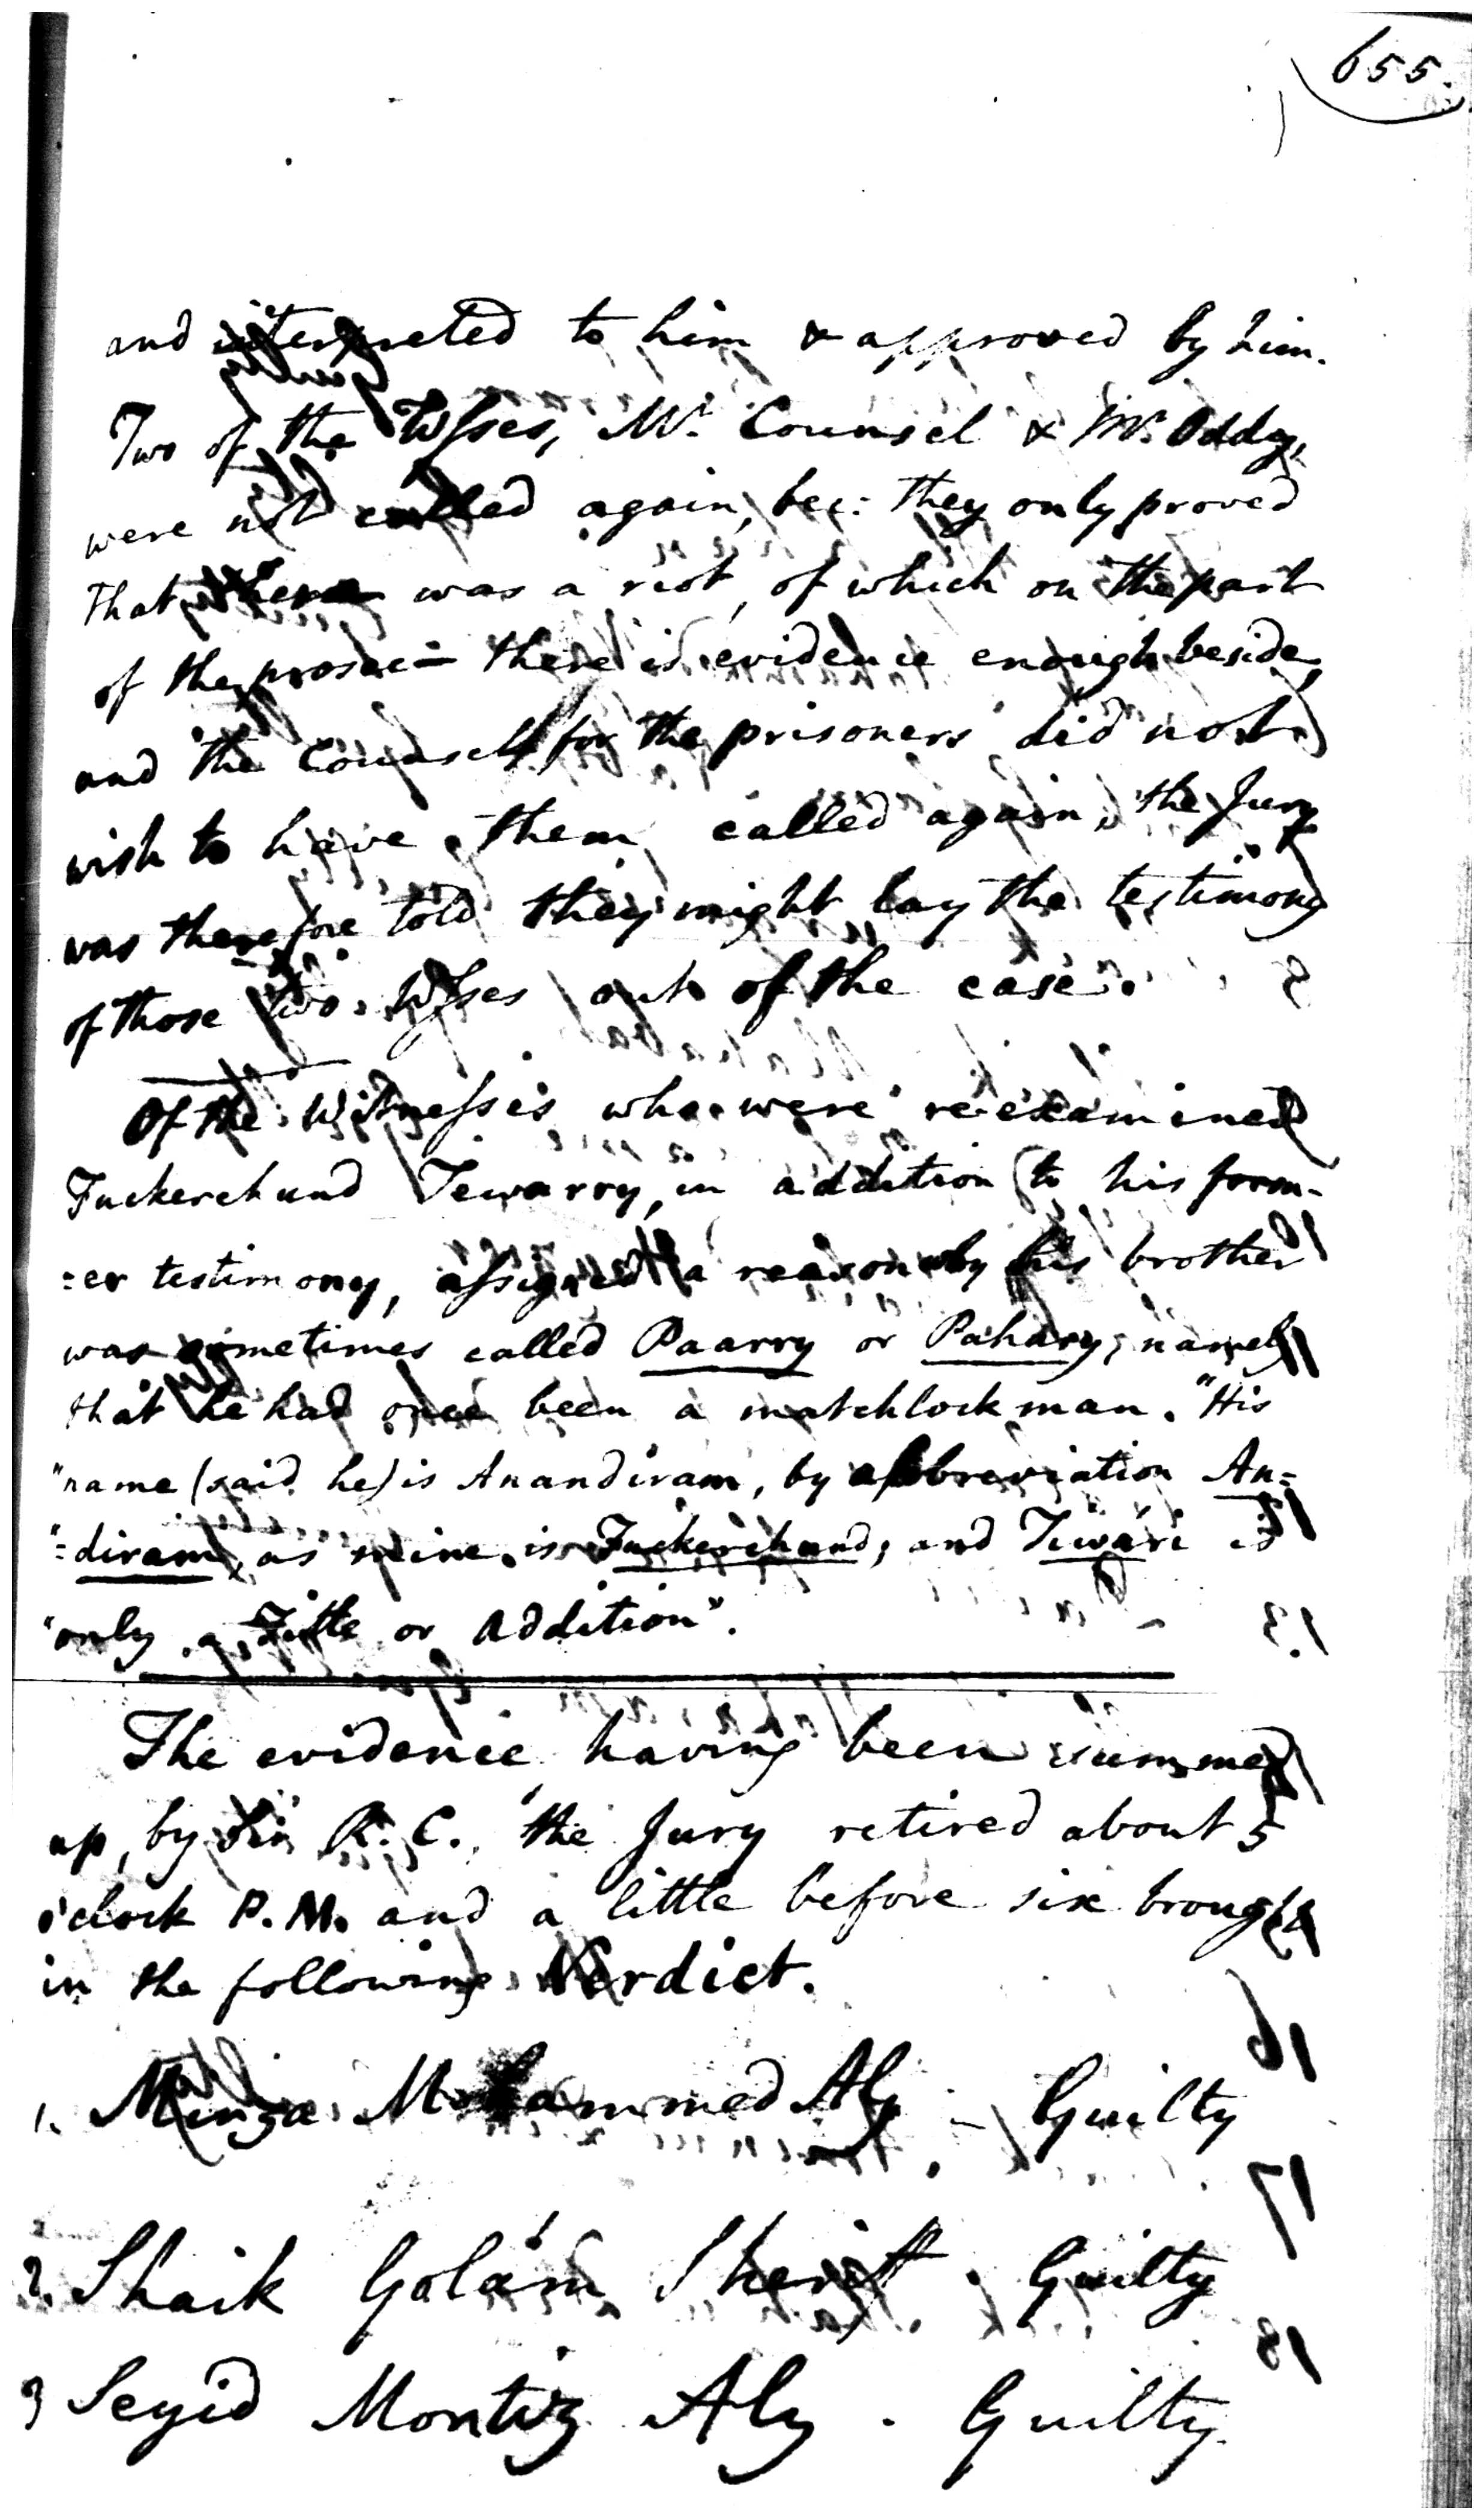 655.
and interpreted to him & approved by him.
Two of the Wsses, Mr. Counsel & Mr. Oddy,
were not called again, bec: they only proved
that there was a riot, of which on the part
of the prosec:n there is evidence enough beside,
and the Counsel for the prisoners did not
wish to have them called again, the Jury
was therefore told they might lay the testimony
of those two Wsses out of the case.
Of the Witnesses who were re-examined
Tuckerchund Tewarry, in addition to his form-
:er testimony, assigned a reason why his brother
was sometimes called Paarry or Pahary, namely
that he had once been a matchlock man. "His
"name (said he) is Anandiram, by abbreviation An=
"=diram, as mine is Tuckerchund; and Tiwári is
"only a Title or addition".
The evidence having been summed
up, by Sir R. C. the Jury retired about 5
o'clock P.M. and a little before six brought
in the following Verdict.
1. Mirza Mohammed Aly - Guilty
2. Shaik Golám Sherif . Guilty
3 Seyid Mortiz Aly . Guilty.